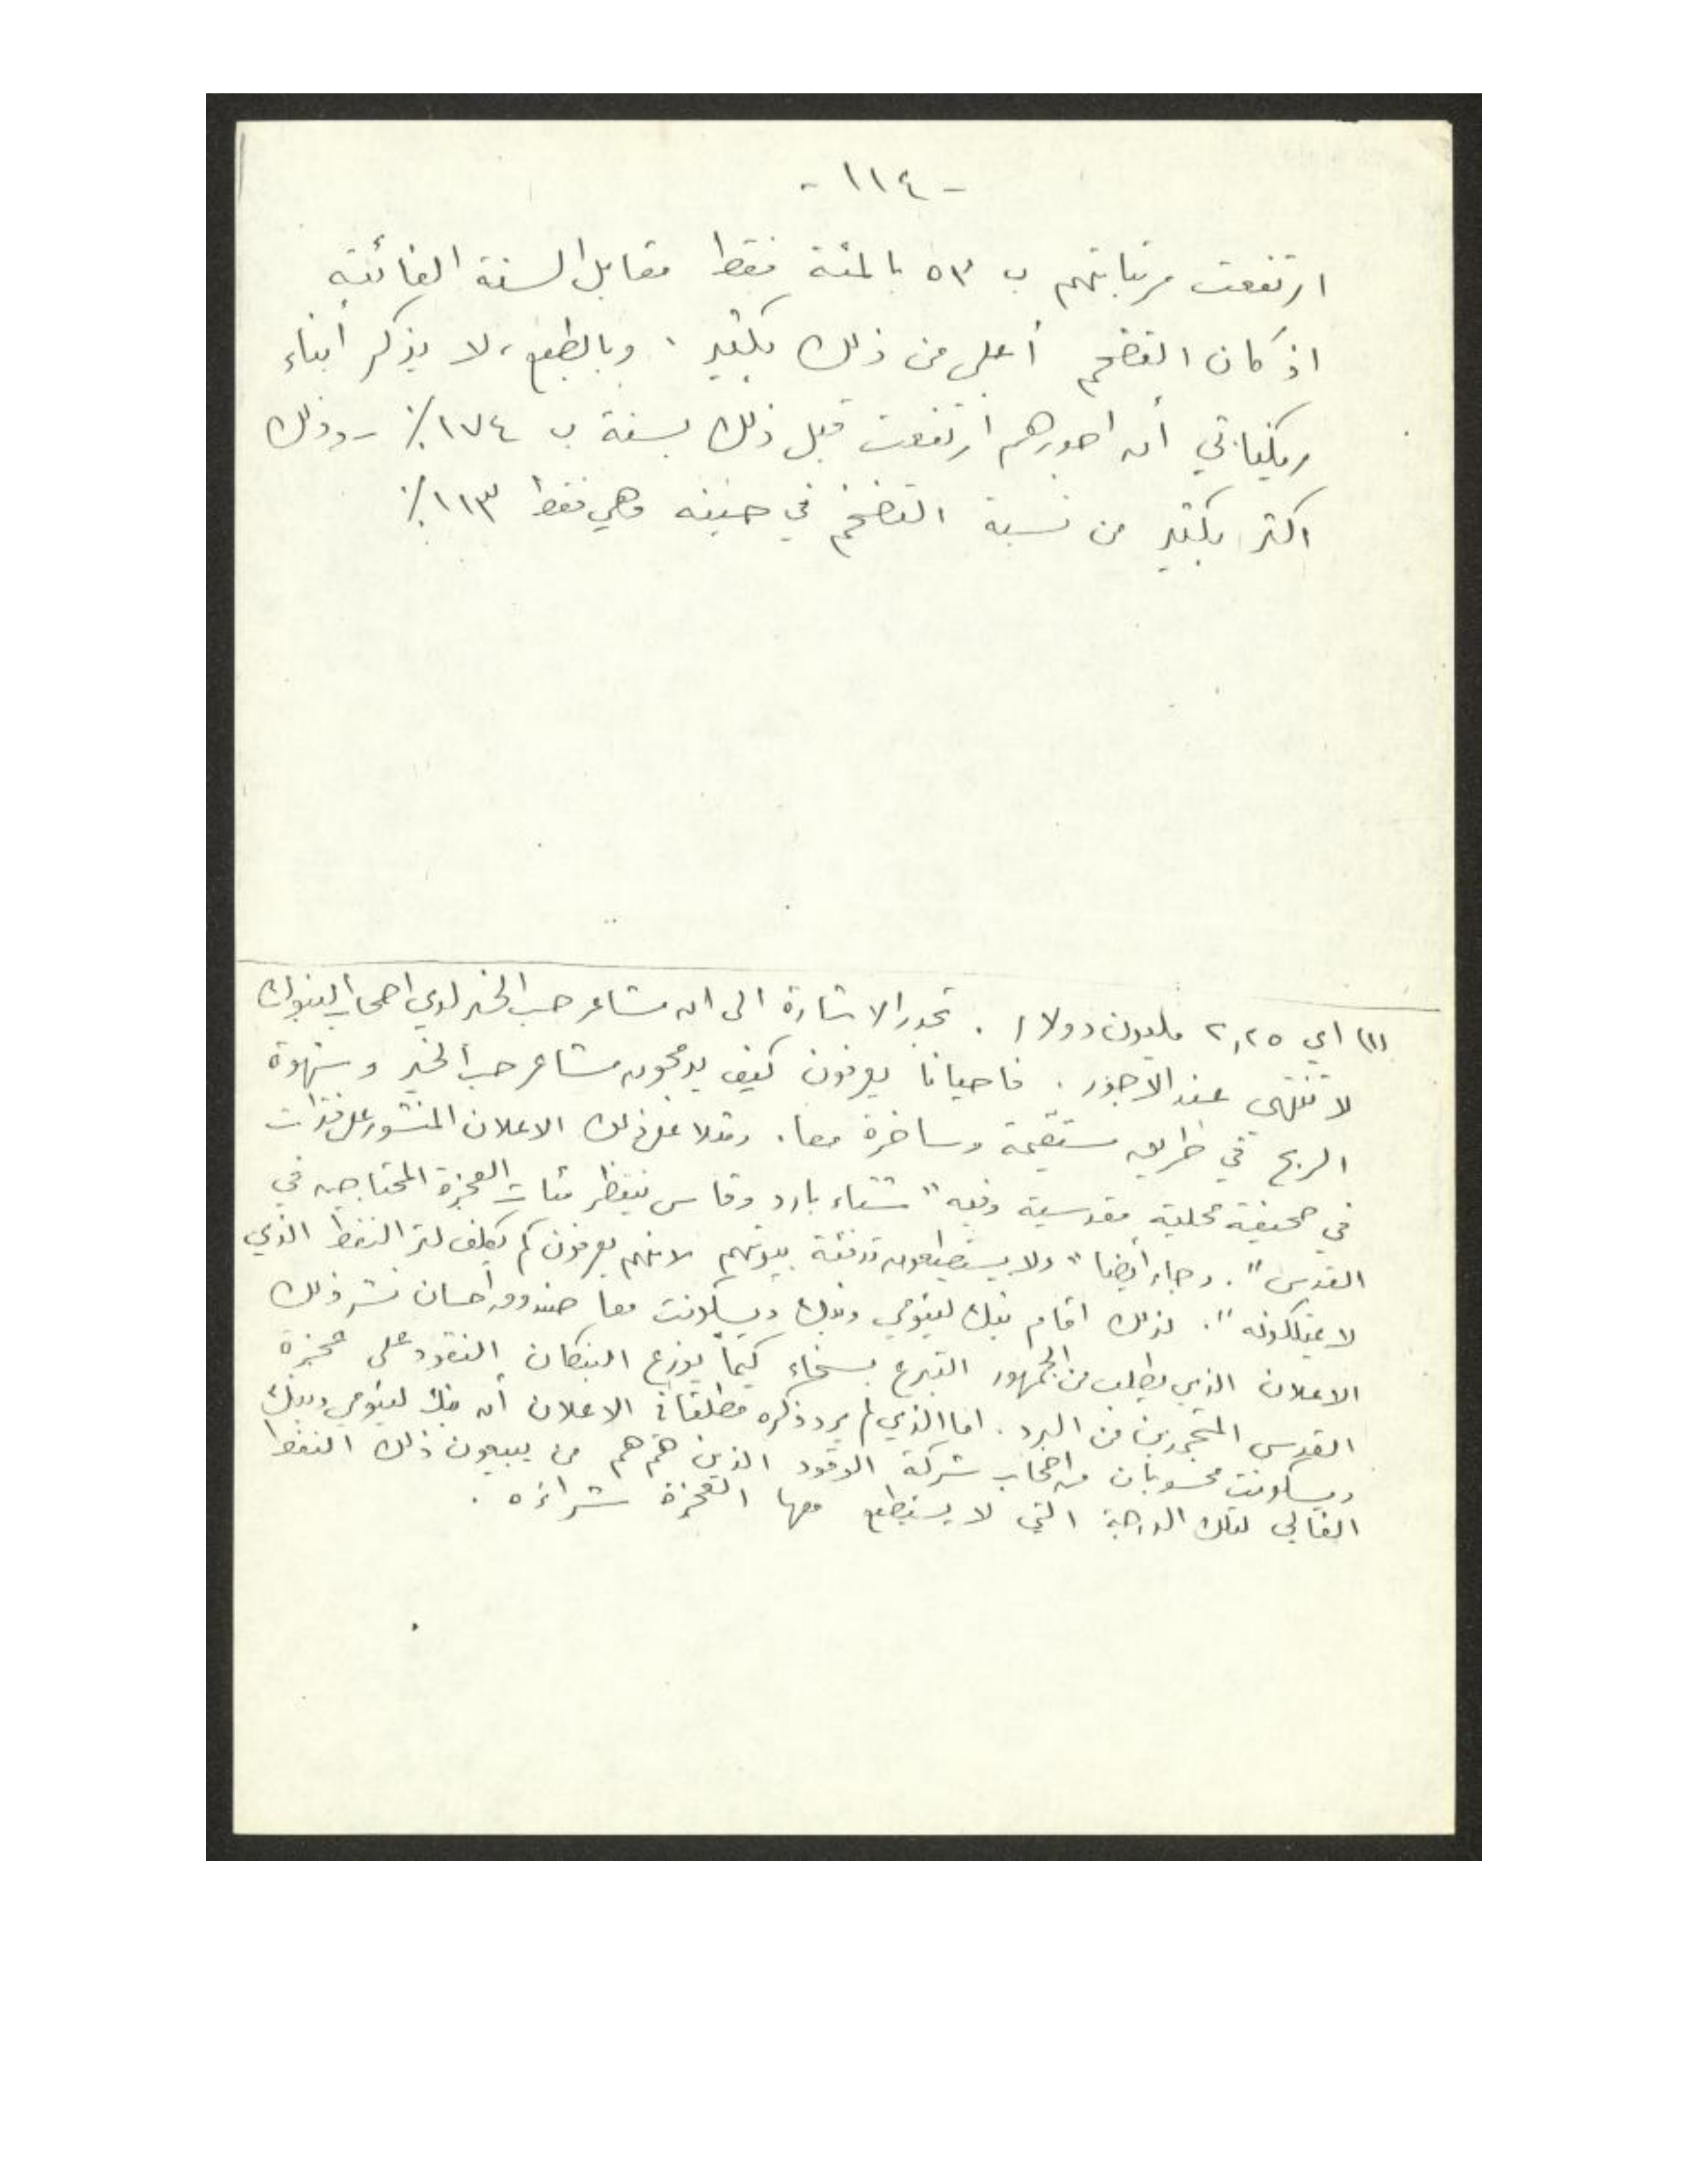 - ١١٤ -
ارتفعت مرتباتهم ب ٥٣ بالمئة فقط مقابل السنة الفائتة
اذ كان التضخم أعلى من ذلك بكثير . وبالطبع، لا يذكر أبناء
ريكاناتي أن اجورهم ارتفعت قبل ذلك بسنة ب ١٧٤٪ - وذلك
اكثر بكثير من نسبة التضخم في حينه وهي فقط ١١٣٪
(١) اي ٢,٢٥ مليون دولار . تجدر الاشارة الى ان مشاعر حب الخير لدى اصحاب البنوك
لا تنتهي عند الاجور . فاحيانا يعرفون كيف يدمجون مشاعر حب الخير وشهوة
الربح في طريق مستقيمة وساخرة معا. ومثلا على ذلك الاعلان المنشور على فترات
في صحيفة محلية مقدسية وفيه " شتاء بارد وقاس ينتظر مئات العجزة المحتاجين في
القدس ". وجاء أيضا " ولا يستطيعون تدفئة بيوتهم لانهم يعرفون كم يكلف لتر النفط الذي
لا يمتلكونه ". لذلك اقام بنك لئومي وبنك ديسكونت معا صندوق احسان نشر ذلك
الاعلان الذي يطلب من الجمهور التبرع بسخاء كيما يوزع البنكان النقود على عجزة
القدس المتجمدين من البرد . اما الذي لم يرد ذكره مطلقا في الاعلان أن بنك لئومي وبنك
ديسكونت محسوبان من اصحاب شركة الوقود الذين هم هم من يبيعون ذلك النفط
الغالي لتلك الدرجة التي لا يستطيع معها العجزة شراءه .